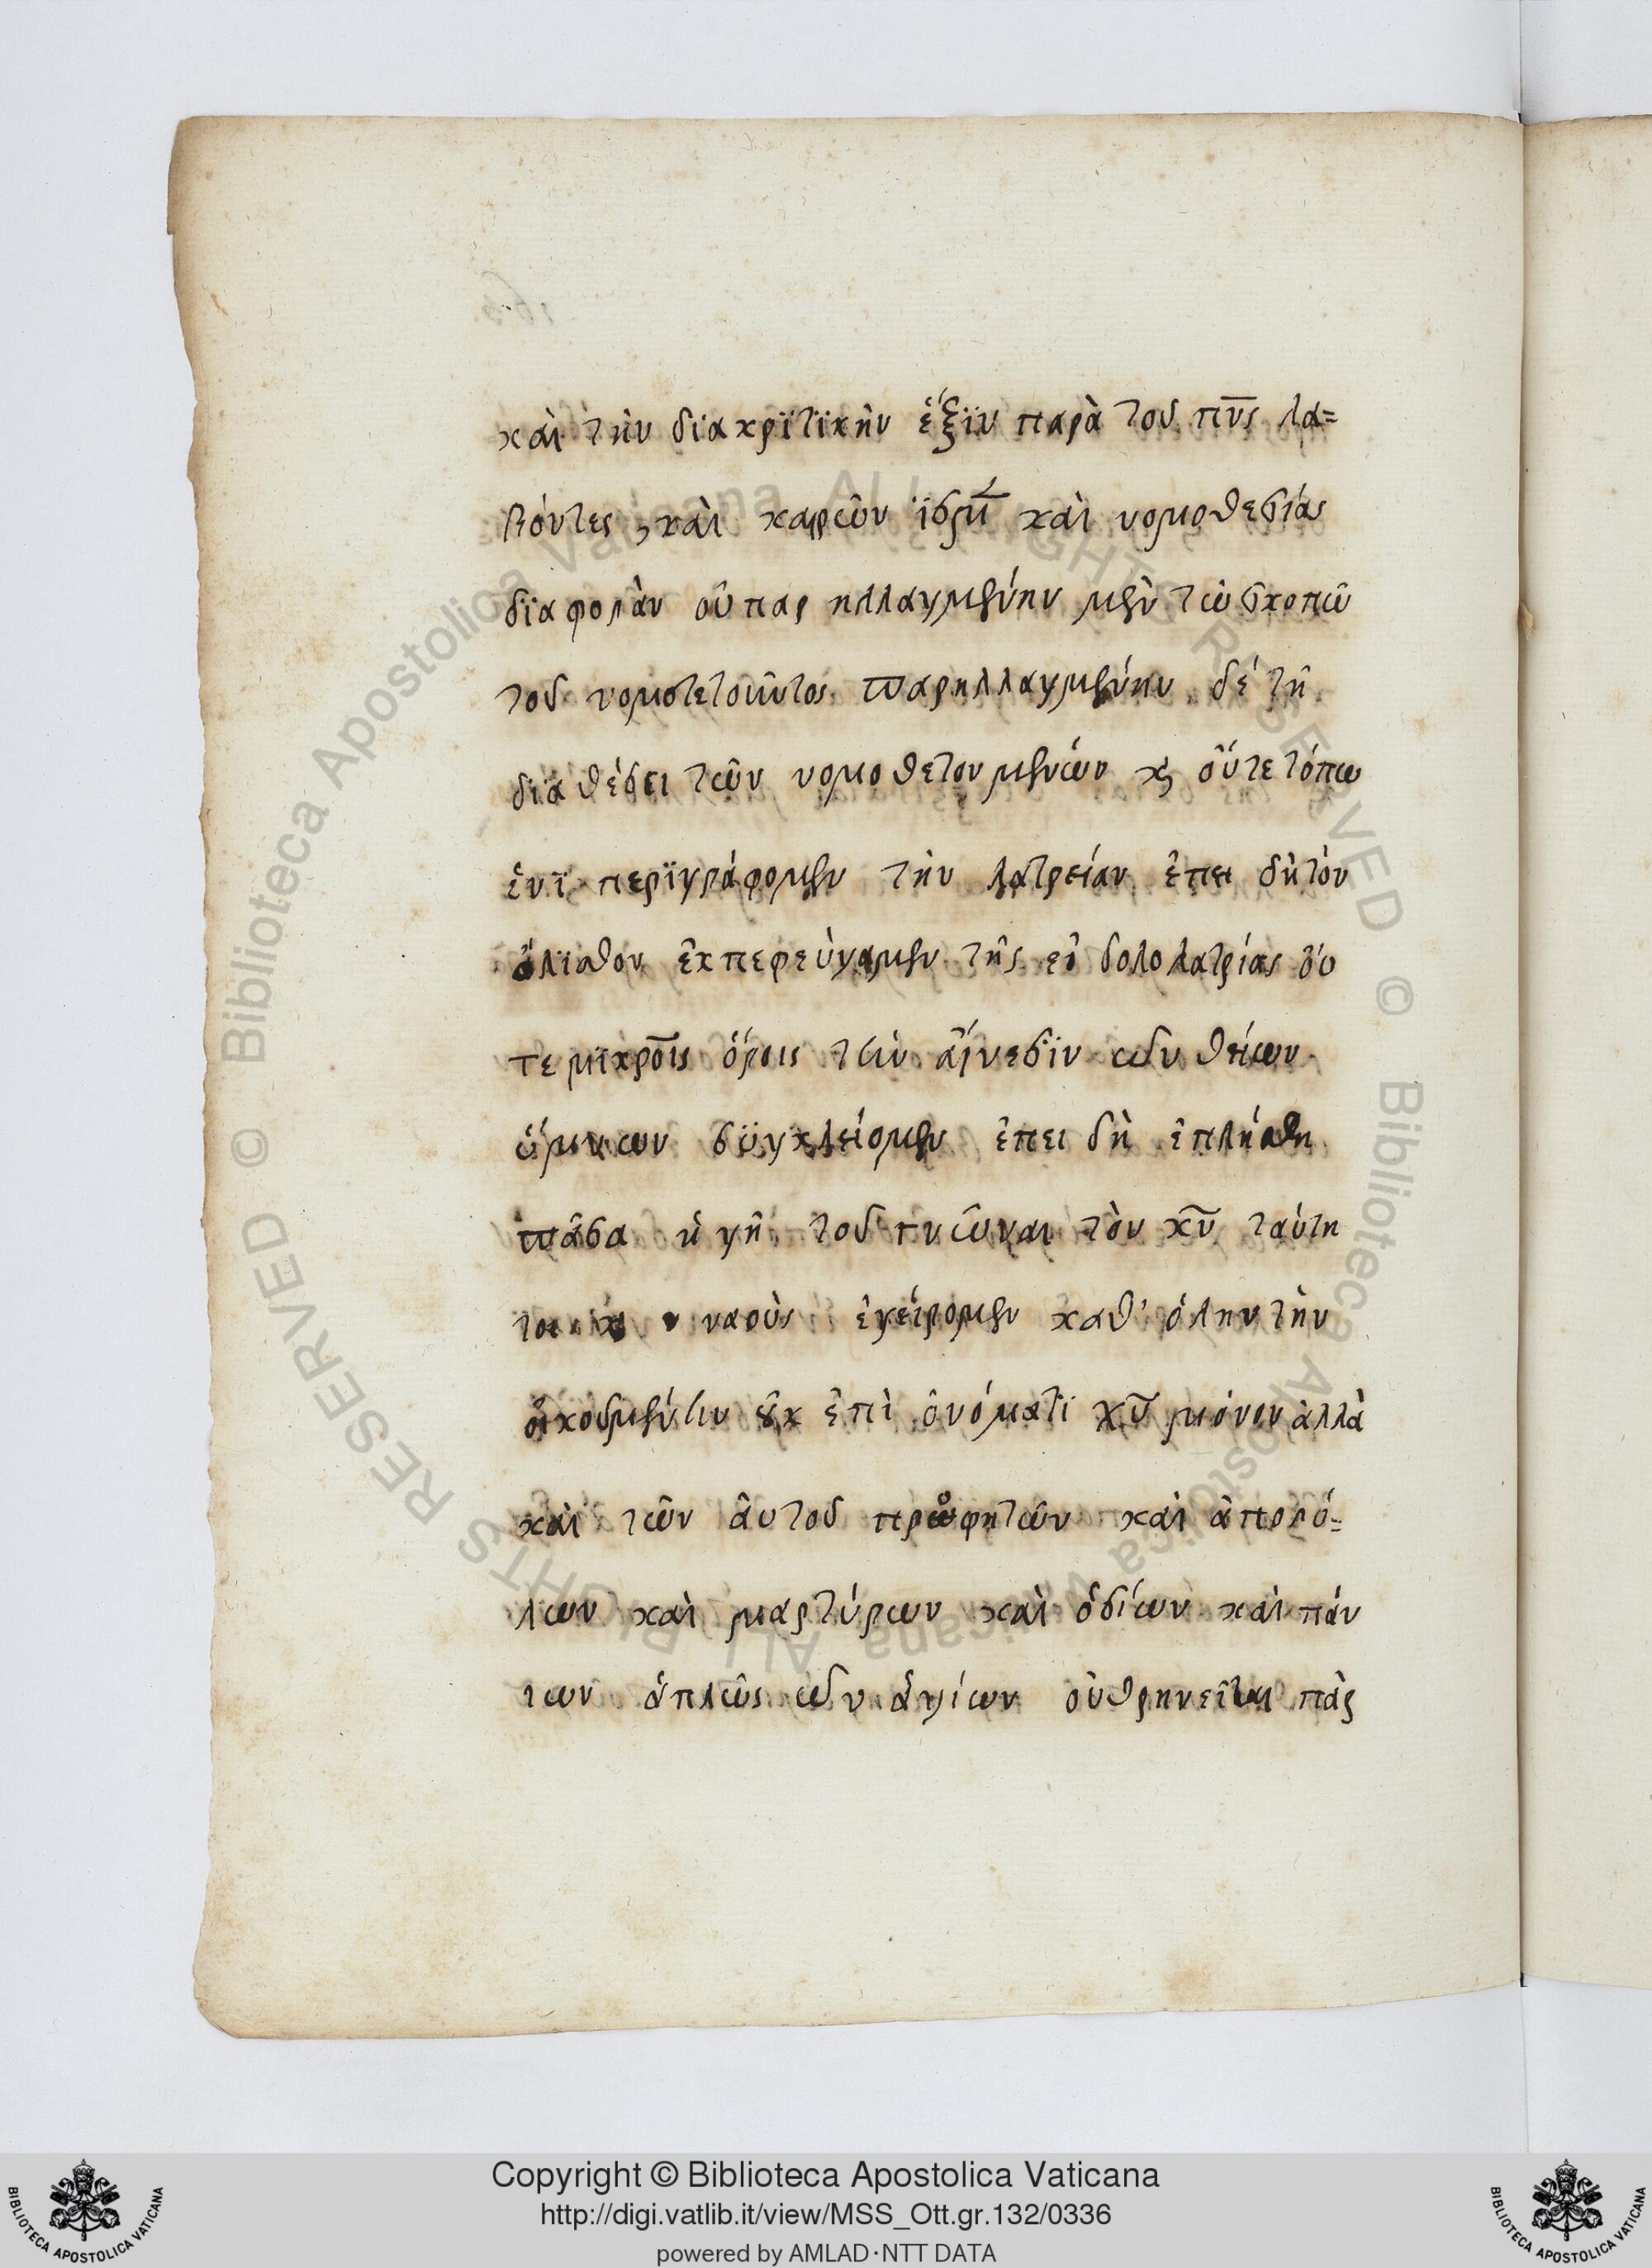 καὶ τὴν δϊακρϊτϊκὴν ἕξϊν παρὰ τοῦ πν̅ς λα=
βόντες, καὶ καιρῶν καὶ νομοθεσίας
δϊαφορὰν οὐ παρηλλαγμένην μὲν τῶ σκοπῶ
τοῦ παρηλλαγμένην δέ τῆ
δϊαθέσει τῶν νομοθετουμενών κ οὔτε τόπω
ἑνϊ περϊγράφομεν τὴν λατρείαν ἐπει δὴ τὸν
ὄλϊσθον ἐκπεφεύγαμεν τῆς εἰδολολατρίας οὔ
τε μϊκροῖς ὅροις τὴν αἴνεσϊν τῶν θείων
ὕμνων σϋγκλείομεν ἐπει δὴ ἐπλήσθη
πᾶσα ἡ γῆ τοῦ γνῶναι τὸν κ̅ν̅ ταύτη
τοι ναοὺς ἐγείρομεν καθ' ὅλην τὴν
οἰκουμένην οὐκ ἐπὶ ὀνόματϊ χ̅υ̅ μόνον ἀλλὰ
καὶ τῶν αὐτοῦ προφητῶν καὶ ἀποσό=
λων καὶ μαρτύρων καὶ ὁσίων καὶ πάν
των ἁπλῶς τῶν ἁγίων οὐ θρηνεῖται πᾶς
Copyright © Biblioteca Apostolica Vaticana
http://digi.vatlib.it/view/MSS_Ott.gr.132/0336
powered by AMLAD·NTT DATA
BIBLIOTECA APOSTOLICA VATICANA
BIBLIOTECA APOSTOLICA VATICANA